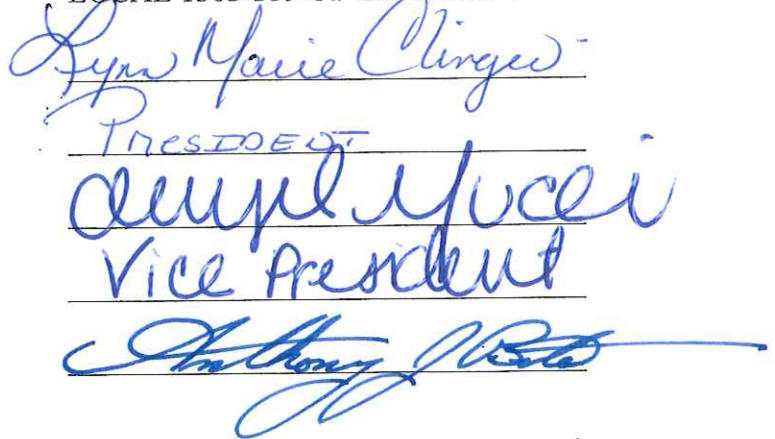 Lynn Marie Clinger
PRESIDENT
Mucci
Vice President
Anthony J